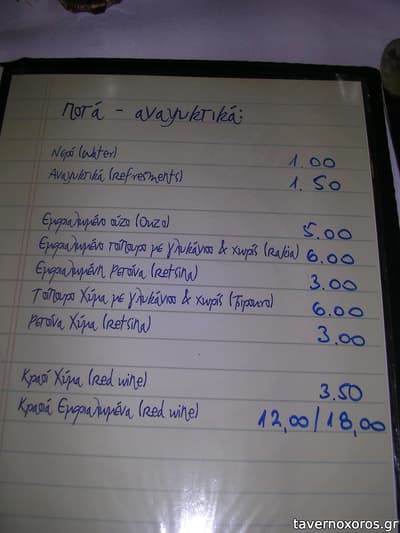 ποτά - αναψυκτικά:
Νερό (water) 1.00
Αναψυκτικά (Refresments) 1.50
Εμφιαλωμένο ούζο (Ouzo) 5.00
Εμφιαλωμένο τσίπουρο με γλυκάνισο & χωρίς (Rakia) 6.00
Εμφιαλωμένη ρετσίνα (retsina) 3.00
Τσίπουρο Χύμα με γλυκάνισο & χωρίς (Tsipouro) 6.00
Ρετσίνα Χύμα (retsina) 3.00
Κρασί Χύμα (red wine) 3.50
Κρασιά Εμφιαλωμένα (red wine) 12,00/18,00
tavernoxoros.gr